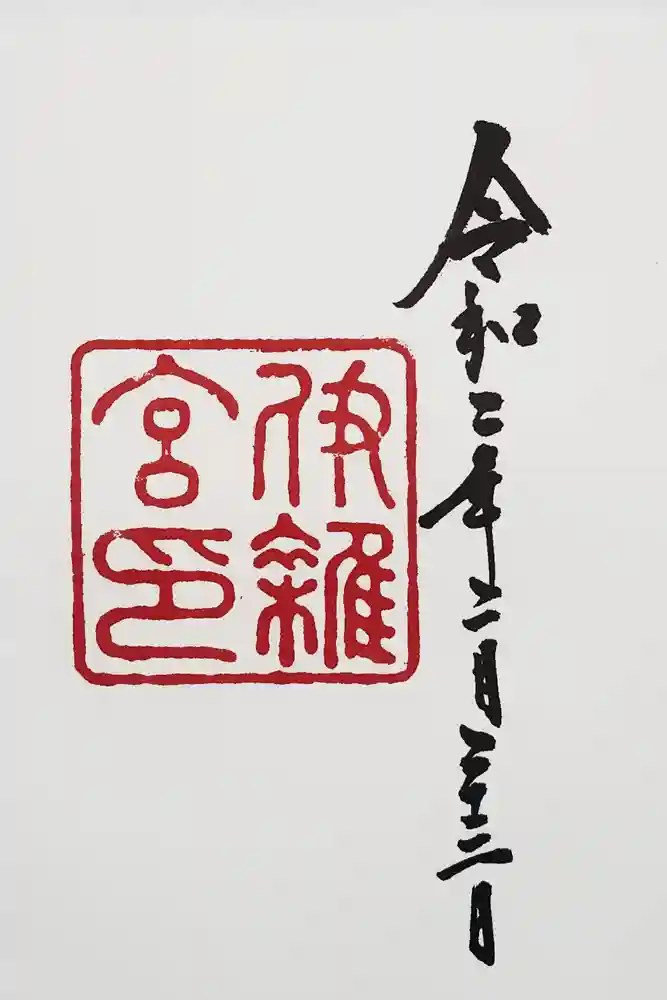 令和二年二月二十二日
伊雜
宮印